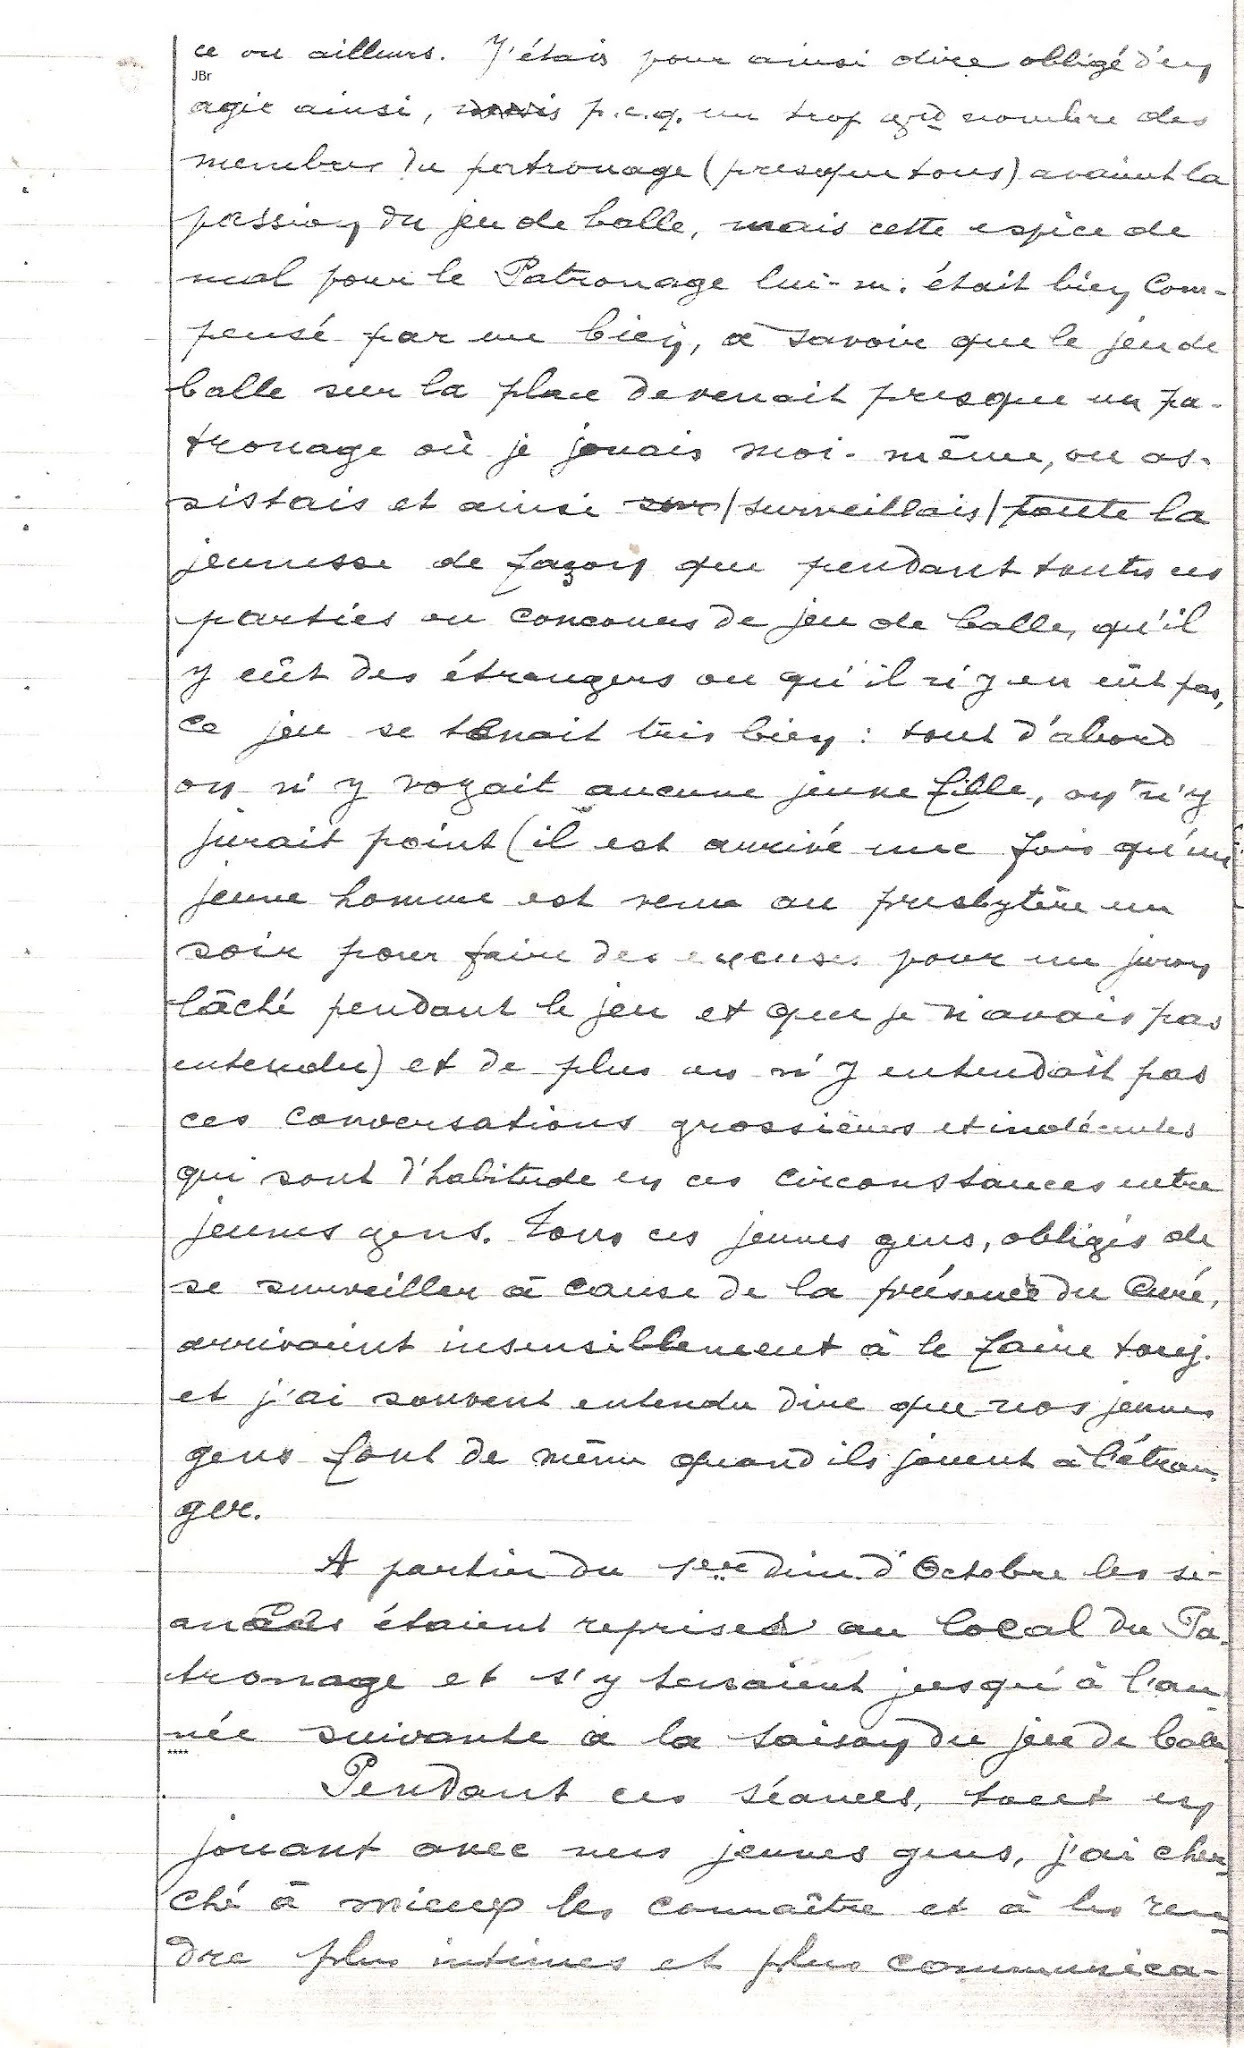 ce ou ailleurs. J'étais pour ainsi dire obligé d'en
JBr
agir ainsi, mais p.c.q. un trop grd nombre des
membres du patronage (presque tous) avaient la
passion du jeu de balle, mais cette espèce de
mal pour le Patronage lui-m. était bien com-
pensé par un bien, à savoir que le jeu de
balle sur la place devenait presque un pa-
tronage où je jouais moi-même, ou as-
sistais et ainsi sur/surveillais/toute la
jeunesse de façon que pendant toutes ces
parties ou concours de jeu de balle, qu'il
y eût des étrangers ou qu'il n'y en eût pas,
ce jeu se tenait très bien : tout d'abord
on n'y voyait aucune jeune fille, on n'y
jurait point (il est arrivé une fois qu'un
jeune homme est venu au presbytère un
soir pour faire des excuses pour un juron
lâché pendant le jeu et que je n'avais pas
entendu) et de plus on n'y entendait pas
ces conversations grossières et indécentes
qui sont d'habitude en ces circonstances entre
jeunes gens. Tous ces jeunes gens, obligés de
se surveiller à cause de la présence du Curé,
arrivaient insensiblement à le faire touj.
et j'ai souvent entendu dire que nos jeunes
gens font de même quand ils jouent à l'étran-
ger.
A partir du 1er dim. d'Octobre les sé-
ances étaient reprises au local du Pa-
tronage et s'y tenaient jusqu'à l'an-
née suivante à la saison du jeu de balle
****
Pendant ces séances, tout en
jouant avec mes jeunes gens, j'ai cher-
ché à mieux les connaître et à les ren-
dre plus intimes et plus communica-